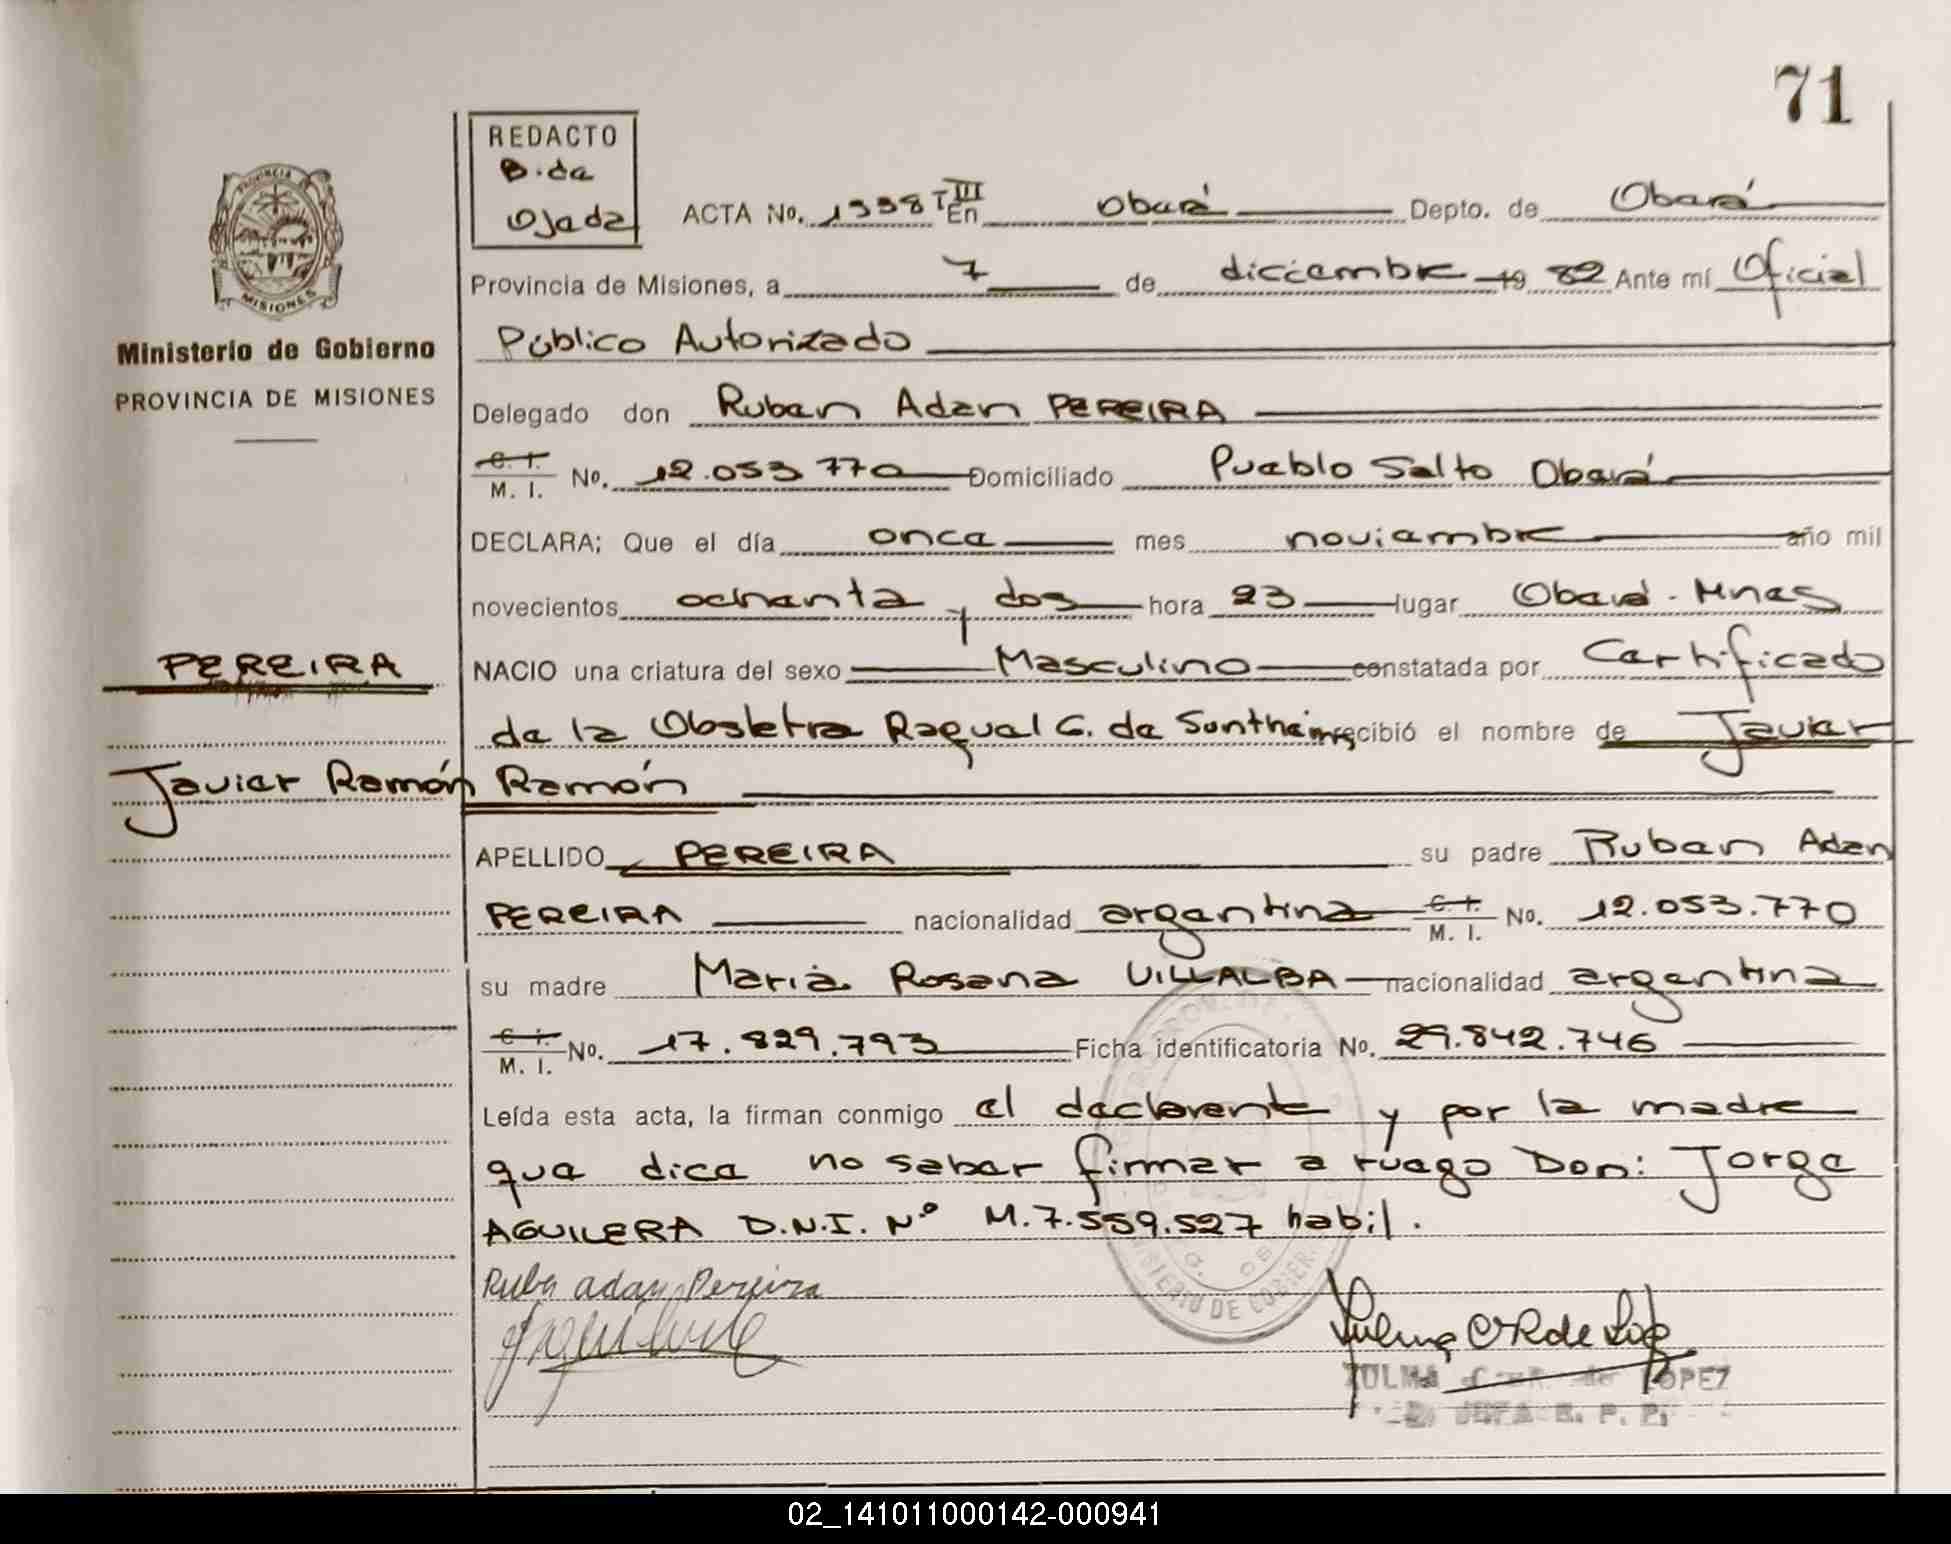 71
REDACTO
B. de
Ojeda
ACTA No. 1338 T III En Oberá Depto. de Oberá
Provincia de Misiones, a 7 de diciembre 19 82 Ante mí Oficial
Público Autorizado
Ministerio de Gobierno
PROVINCIA DE MISIONES
PROVINCIA DE
MISIONES
Delegado don Ruben Adan PEREIRA
C. I.
M. I. No. 12.053.770 Domiciliado Pueblo Salto Oberá
DECLARA; Que el día once mes noviembre año mil
novecientos ochenta y dos hora 23 lugar Oberá - Mnes
PEREIRA
NACIO una criatura del sexo Masculino constatada por Certificado
de la Obstetra Raquel G. de recibió el nombre de Javier
Javier Ramón
Ramón
APELLIDO PEREIRA su padre Ruben Adan
PEREIRA nacionalidad argentina C. I. M. I. No. 12.053.770
su madre Maria Rosana VILLALBA nacionalidad argentina
C. I.
M. I. No. 17.829.793 Ficha identificatoria No. 29.842.746
Leída esta acta, la firman conmigo el declarente y por la madre
que dice no saber firmar a ruego Don: Jorge
AGUILERA D.N.I. Nº M.7.559.527 habil.
Ruben adan Pereira
ZULMA de LOPEZ
JEFA R. P. P.
MINISTERIO DE GOBIERNO
02_141011000142-000941